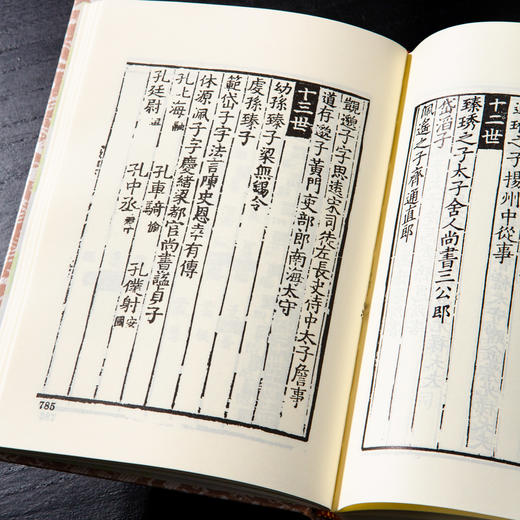 之子揚州中從事
十二世
臻琇之子太子舍人尚書三公郎
岱滔子
佩遙之子齊通直郎
觀邈子字思遠宋司徒左長史侍中太子詹事
道存邈子黃門吏部郎南海太守
十三世
幼孫臻子梁無錫令
虔孫臻子
範岱子字法言陳史恩幸有傳
休源佩子字慶緒梁都官尚書謚貞子
孔上海融 孔車騎愉 孔僕射安國
孔廷尉 孔中丞
785